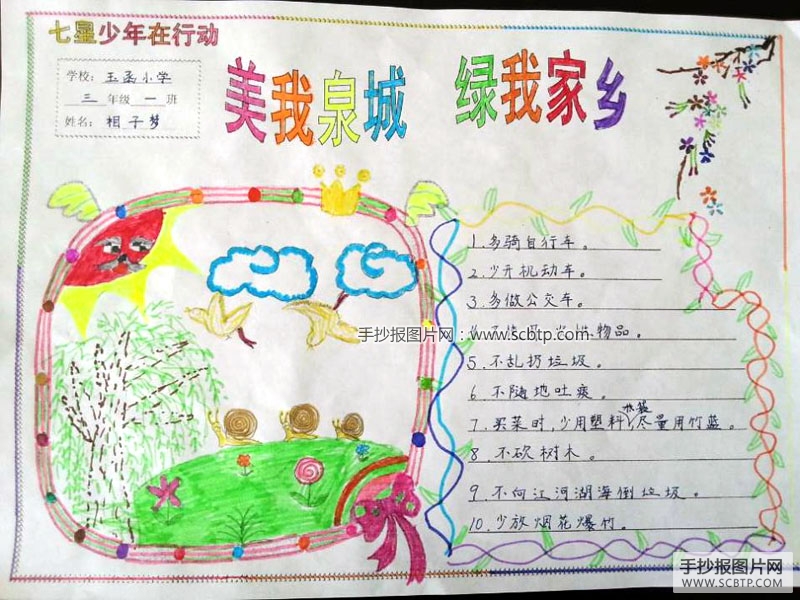 七星少年在行动
学校：玉函小学
三年级一班
姓名：相子梦
美我泉城 绿我家乡
1.多骑自行车。
2.少开机动车。
3.多做公交车。
手抄报图片网：www.scbtp.com
物品。
5.不乱扔垃圾。
6.不随地吐痰。
7.买菜时,少用塑料水袋,尽量用竹蓝。
8.不砍树木。
9.不向江河湖海倒垃圾。
10.少放烟花爆竹。
手抄报图片网
WWW.SCBTP.COM